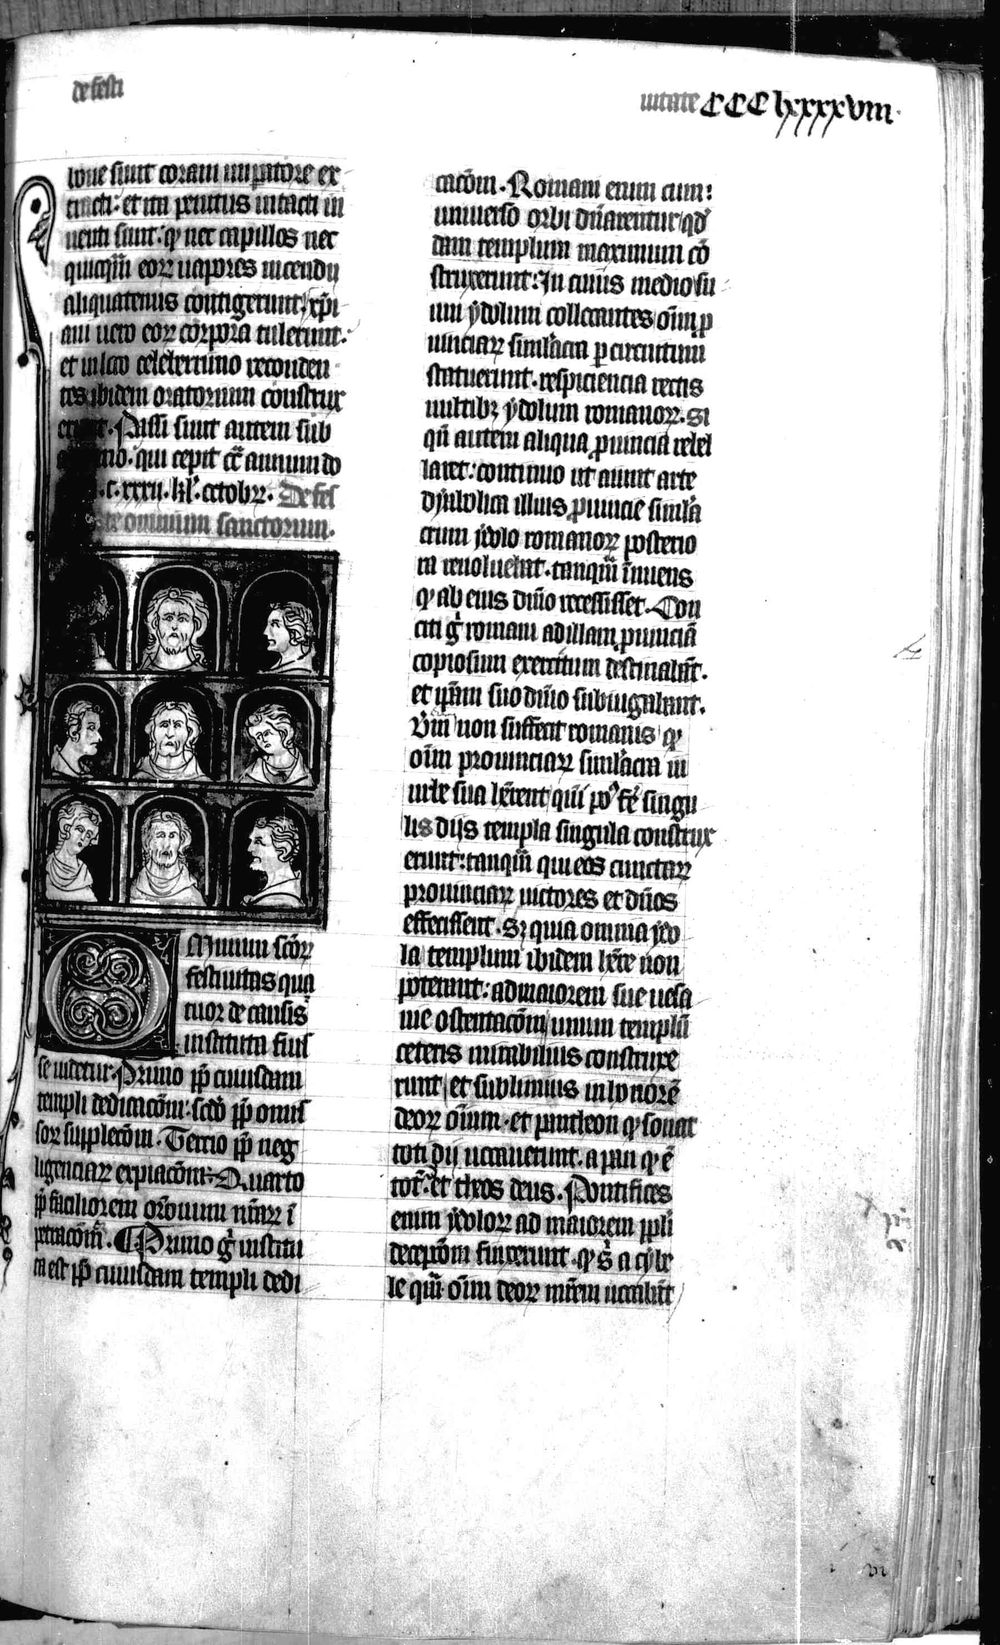 de festi
uitate CCC lxxxxviii.
ione sunt coram imp̄atore ex
tincti: et ita penitus intacti in
uenti sunt: ꝙ nec capillos nec
quicqȝ eoꝝ uapores incendii
aliquatenus contigerunt xp̄i
ani uero eoꝝ corpora tulerunt:
et in loco celeberrimo reconden
tes ibidem oratorium construx
erunt. Passi sunt autem sub
qui cepit cc̄ annum do
.c.xxxii. kl' octobꝝ. De fes
te omnium sanctorum.
Omnium sc̄oꝝ
festiuitas qua
tuor de causis
instituta fuis
se uidetur. Primo pp̄ cuiusdam
templi dedicac̄om: sc̄do pp̄ omis
soꝝ supplec̄om. Tercio pp̄ neg
ligenciaꝝ expiac̄om: Quarto
pp̄ faciliorem or̄onum nr̄aꝝ i
petrac̄om̄. Primo g̊ institu
ta est pp̄ cuiusdam templi dedi
cac̄om. Romani enim cum:
uniuerso orbi dn̄arentur qd̓
dam templum maximum co̅
struxerunt: In cuius medio su
um ydolum collocantes om̄i p̱
uinciaꝝ simulacra p̱ circuitum
statuerunt. respiciencia rectis
uultibꝫ ydolum romanoꝝ. Si
qn̄ autem aliqua ꝓuincia rebel
laret: continuo ut aiunt arte
dyabolica illius ꝓuincie simula
crum ydolo romanoꝝ posterio
ra reuoluebat. tanqȝ innuens
ꝙ ab eius dn̄io recessisset. Con
citi g̊ romani ad illam ꝓuinciā
copiosum exercitum destinabāt.
et ip̄am suo dn̄io subiugabant.
Ver̄ non suffecit romanis ꝙ
om̄i prouinciaꝝ simulacra in
urbe sua hr̄ent qui po̓ fe̅ singu
lis diis templa singula construx
erunt: tanqȝ qui eos cunctaꝝ
prouinciaꝝ uictores et dn̄os
effecissent. Sꝫ quia omnia ydo
la templum ibidem hr̄e non
poterant: ad maiorem sue uesa
nie ostentac̄om unum templū
ceteris mirabilius construxe
runt et sublimius in honorē
deoꝝ om̄ium. et pantheon ꝙ sonat
toti dii uocauerunt. a pan ꝙ ē
tot̄. et theos deus. Pontifices
enim ydoloꝝ ad maiorem ppl̄i
decepc̄om finxerunt. ꝙ s̄ a cybe
le quā om̄i deoꝝ mr̄em uocabāt